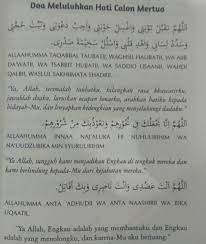 Doa Meluluhkan Hati Calon Mertua
اَللّٰهُمَّ تَقَبَّلْ تَوْبَتِيْ وَاغْسِلْ حَوْبَتِيْ وَأَجِبْ دَعْوَتِيْ وَثَبِّتْ حُجَّتِيْ
وَسَدِّدْ لِسَانِيْ وَاهْدِ قَلْبِيْ وَاسْلُلْ سَخِيْمَةَ صَدْرِيْ.
ALLAAHUMMA TAQABBAL TAUBATII, WAGHSIL HAUBATII, WA AJIB
DA'WATII, WA TSABBIT HUJJATII, WA SADDID LISAANII, WAHDI
QALBII, WASLUL SAKHIIMATA SHADRII.
"Ya Allah, terimalah taubatku, hilangkanlah
jawablah doaku, lisanku, arahkan hatiku kepada
hidayah-Mu, dan
اَللّٰهُمَّ اِنَّا نَجْعَلُكَ فِيْ نُحُوْرِهِمْ وَنَعُوْذُبِكَ مِنْ شُرُوْرِهِمْ.
ALLAAHUMMA INNAA NAJ'ALUKA FII NUHUURIHIM WA
NA'UUDZUBIKA MIN SYURUURIHIM
"Ya Allah, sungguh kami menjadikan Engkau di tengkuk mereka dan
kami berlindung kepada-Mu dari kejahatan mereka."
اَللّٰهُمَّ اَنْتَ عَضُدِيْ وَاَنْتَ نَاصِرِيْ وَبِكَ اُقَاتِلُ.
ALLAHUMMA ANTA 'ADHUDII WA ANTA NAASHIRII WA BIKA
UQAATIL.
"Ya Allah, Engkau adalah yang membantuku dan Engkau
adalah yang menolongku, dan karena-Mu aku berjuang."